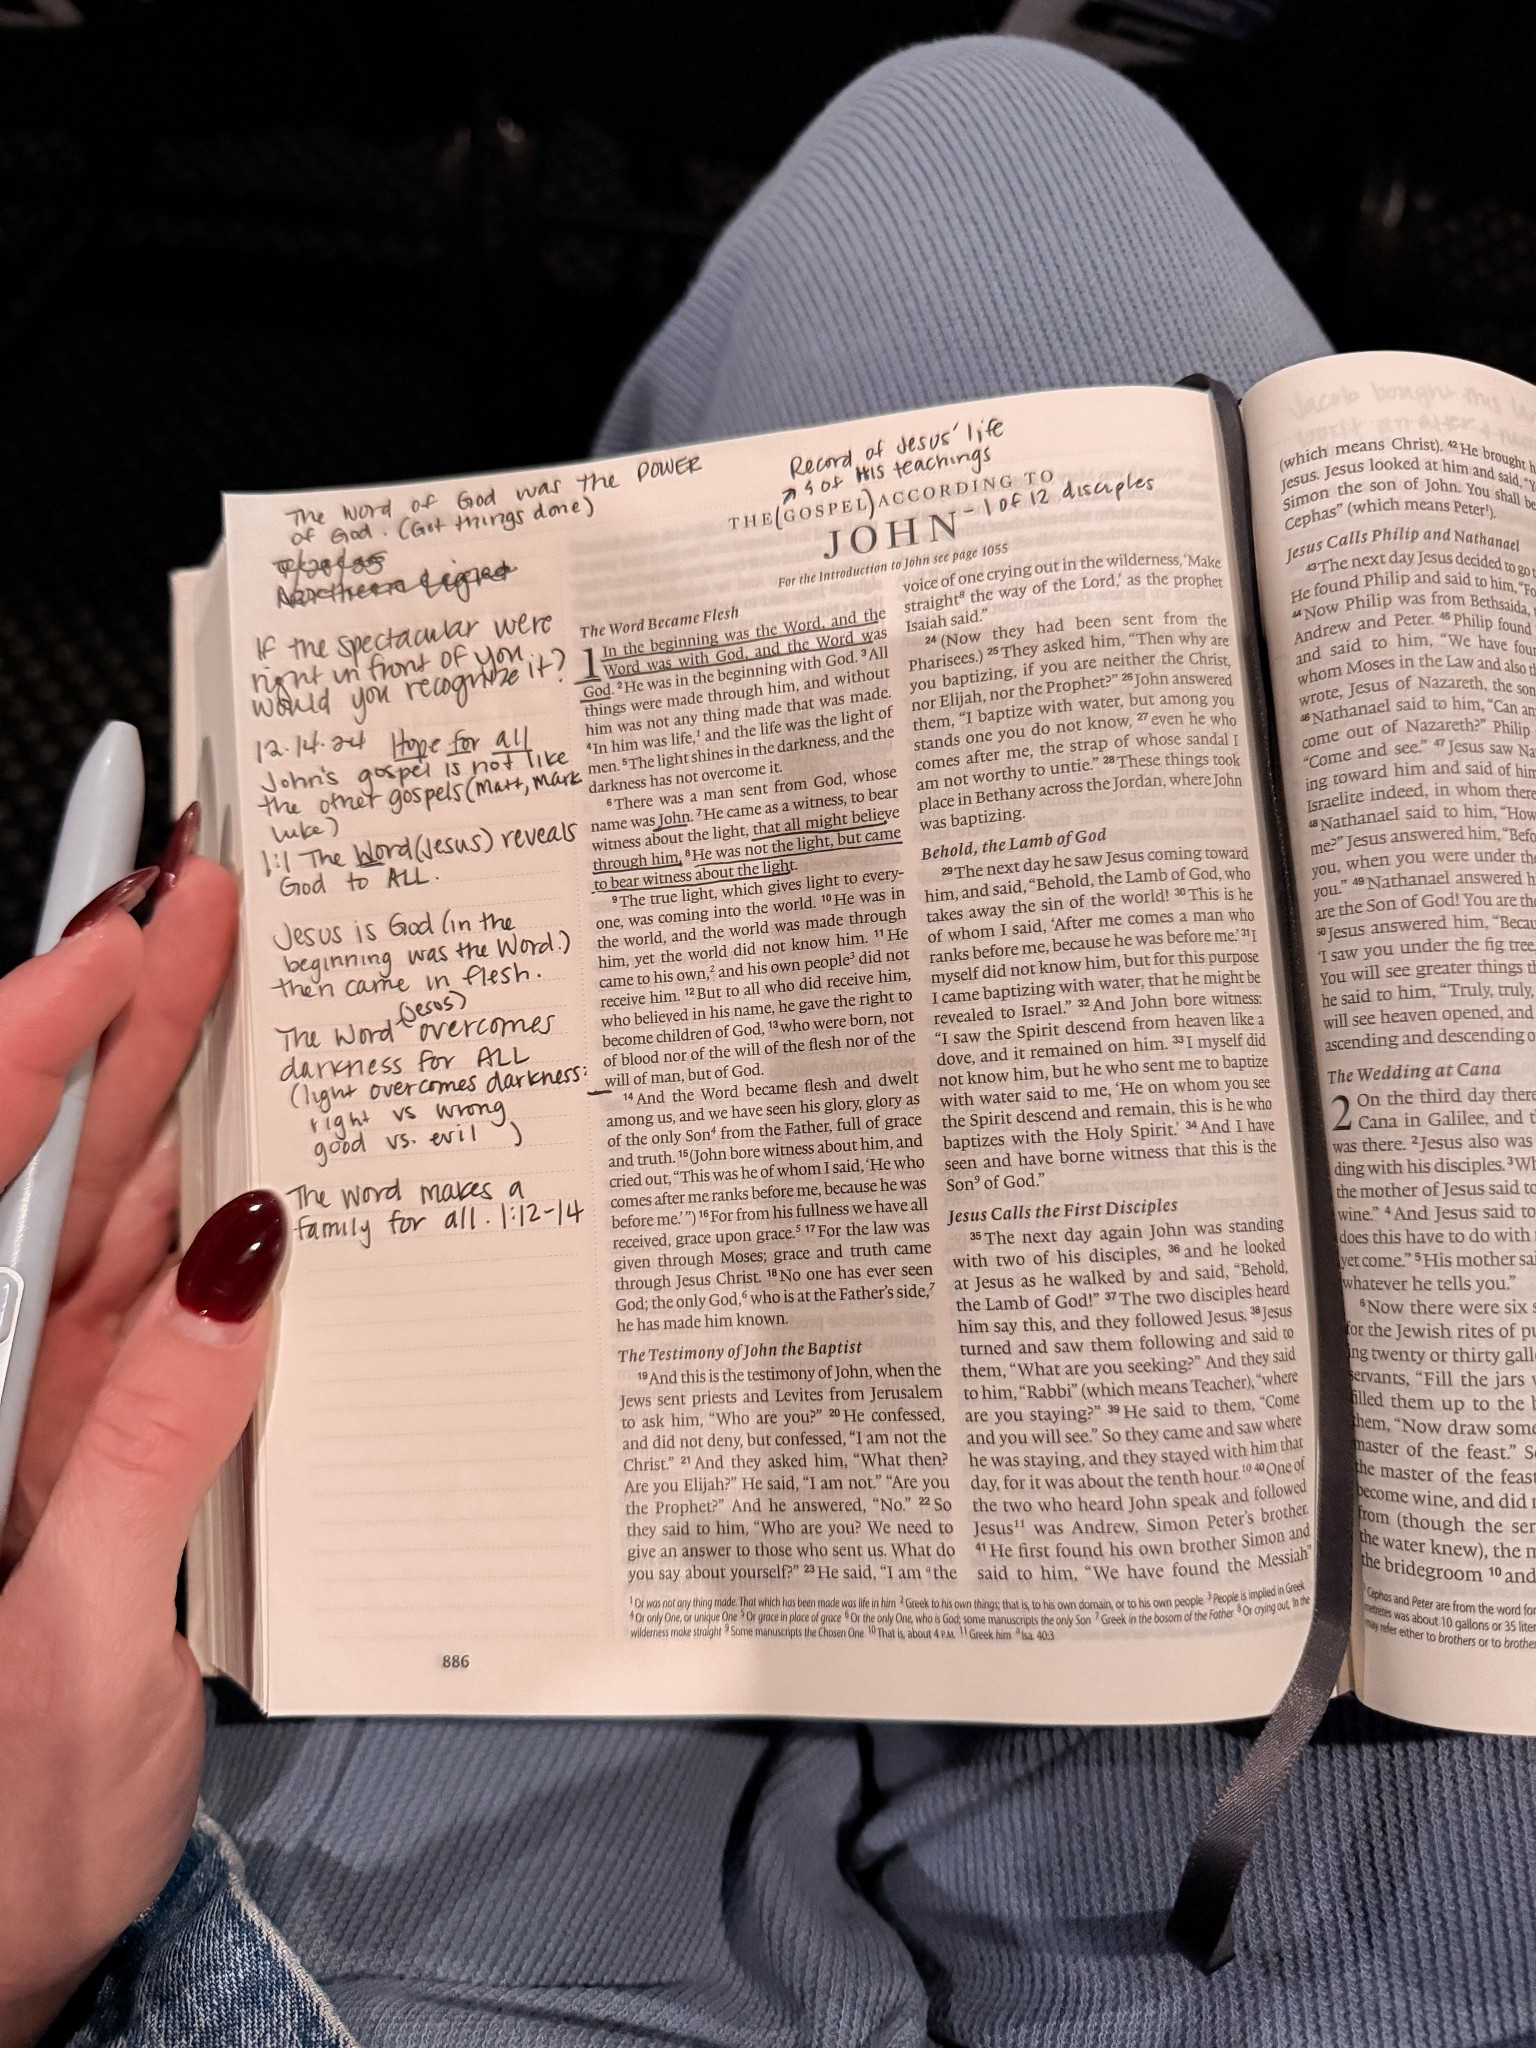 The Word of God was the POWER
of God. (Got things done)
If the spectacular were
right in front of you
would you recognize it?
12.14.24 Hope for all
John's gospel is not like
the other gospels (Matt, Mark
Luke)
1:1 The Word (Jesus) reveals
God to ALL.
Jesus is God (in the
beginning was the Word.)
then came in flesh.
(Jesus)
The Word overcomes
darkness for ALL
(light overcomes darkness:
right vs wrong
good vs. evil )
The Word makes a
family for all. 1:12-14
886
Record of Jesus' life
of His teachings
THE (GOSPEL) ACCORDING TO
JOHN - 1 of 12 disciples
For the Introduction to John see page 1055
The Word Became Flesh
1 In the beginning was the Word, and the
Word was with God, and the Word was
God. 2 He was in the beginning with God. 3 All
things were made through him, and without
him was not any thing made that was made.
4 In him was life,1 and the life was the light of
men. 5 The light shines in the darkness, and the
darkness has not overcome it.
6 There was a man sent from God, whose
name was John. 7 He came as a witness, to bear
witness about the light, that all might believe
through him. 8 He was not the light, but came
to bear witness about the light.
9 The true light, which gives light to every-
one, was coming into the world. 10 He was in
the world, and the world was made through
him, yet the world did not know him. 11 He
came to his own,2 and his own people3 did not
receive him. 12 But to all who did receive him,
who believed in his name, he gave the right to
become children of God, 13 who were born, not
of blood nor of the will of the flesh nor of the
will of man, but of God.
14 And the Word became flesh and dwelt
among us, and we have seen his glory, glory as
of the only Son4 from the Father, full of grace
and truth. 15 (John bore witness about him, and
cried out, “This was he of whom I said, ‘He who
comes after me ranks before me, because he was
before me.’”) 16 For from his fullness we have all
received, grace upon grace.5 17 For the law was
given through Moses; grace and truth came
through Jesus Christ. 18 No one has ever seen
God; the only God,6 who is at the Father's side,7
he has made him known.
The Testimony of John the Baptist
19 And this is the testimony of John, when the
Jews sent priests and Levites from Jerusalem
to ask him, “Who are you?” 20 He confessed,
and did not deny, but confessed, “I am not the
Christ.” 21 And they asked him, “What then?
Are you Elijah?” He said, “I am not.” “Are you
the Prophet?” And he answered, “No.” 22 So
they said to him, “Who are you? We need to
give an answer to those who sent us. What do
you say about yourself?” 23 He said, “I am a the
voice of one crying out in the wilderness, ‘Make
straight8 the way of the Lord,’ as the prophet
Isaiah said.”
24 (Now they had been sent from the
Pharisees.) 25 They asked him, “Then why are
you baptizing, if you are neither the Christ,
nor Elijah, nor the Prophet?” 26 John answered
them, “I baptize with water, but among you
stands one you do not know, 27 even he who
comes after me, the strap of whose sandal I
am not worthy to untie.” 28 These things took
place in Bethany across the Jordan, where John
was baptizing.
Behold, the Lamb of God
29 The next day he saw Jesus coming toward
him, and said, “Behold, the Lamb of God, who
takes away the sin of the world! 30 This is he
of whom I said, ‘After me comes a man who
ranks before me, because he was before me.’ 31 I
myself did not know him, but for this purpose
I came baptizing with water, that he might be
revealed to Israel.” 32 And John bore witness:
“I saw the Spirit descend from heaven like a
dove, and it remained on him. 33 I myself did
not know him, but he who sent me to baptize
with water said to me, ‘He on whom you see
the Spirit descend and remain, this is he who
baptizes with the Holy Spirit.’ 34 And I have
seen and have borne witness that this is the
Son9 of God.”
Jesus Calls the First Disciples
35 The next day again John was standing
with two of his disciples, 36 and he looked
at Jesus as he walked by and said, “Behold,
the Lamb of God!” 37 The two disciples heard
him say this, and they followed Jesus. 38 Jesus
turned and saw them following and said to
them, “What are you seeking?” And they said
to him, “Rabbi” (which means Teacher), “where
are you staying?” 39 He said to them, “Come
and you will see.” So they came and saw where
he was staying, and they stayed with him that
day, for it was about the tenth hour.10 40 One of
the two who heard John speak and followed
Jesus11 was Andrew, Simon Peter's brother.
41 He first found his own brother Simon and
said to him, “We have found the Messiah”
1 Or was not any thing made. That which has been made was life in him 2 Greek to his own things; that is, to his own domain, or to his own people 3 People is implied in Greek
4 Or only One, or unique One 5 Or grace in place of grace 6 Or the only One, who is God; some manuscripts the only Son 7 Greek in the bosom of the Father 8 Or crying out, ‘In the
wilderness make straight 9 Some manuscripts the Chosen One 10 That is, about 4 P.M. 11 Greek him a Isa. 40:3
Jacob bought this
(which means Christ). 42 He brought
Jesus. Jesus looked at him and said,
Simon the son of John. You shall be
Cephas” (which means Peter1).
Jesus Calls Philip and Nathanael
43 The next day Jesus decided to go
He found Philip and said to him,
44 Now Philip was from Bethsaida,
Andrew and Peter. 45 Philip found
and said to him, “We have
whom Moses in the Law and also
wrote, Jesus of Nazareth, the son
46 Nathanael said to him, “Can
come out of Nazareth?” Philip
“Come and see.” 47 Jesus saw
ing toward him and said of him
Israelite indeed, in whom there
48 Nathanael said to him, “How
me?” Jesus answered him,
you, when you were under the
you.” 49 Nathanael answered
are the Son of God! You are the
50 Jesus answered him,
‘I saw you under the fig tree,
You will see greater things
he said to him, “Truly, truly,
will see heaven opened, and
ascending and descending
The Wedding at Cana
2 On the third day there
Cana in Galilee, and
was there. 2 Jesus also was
ding with his disciples. 3
the mother of Jesus said to
wine.” 4 And Jesus said to
does this have to do with
yet come.” 5 His mother
whatever he tells you.”
6 Now there were six
for the Jewish rites of
ing twenty or thirty
servants, “Fill the jars
filled them up to the
them, “Now draw some
master of the feast.”
the master of the feast
become wine, and did
from (though the
the water knew), the
the bridegroom 10 and
1 Cephas and Peter are from the word for
metretes was about 10 gallons or 35
may refer either to brothers or to